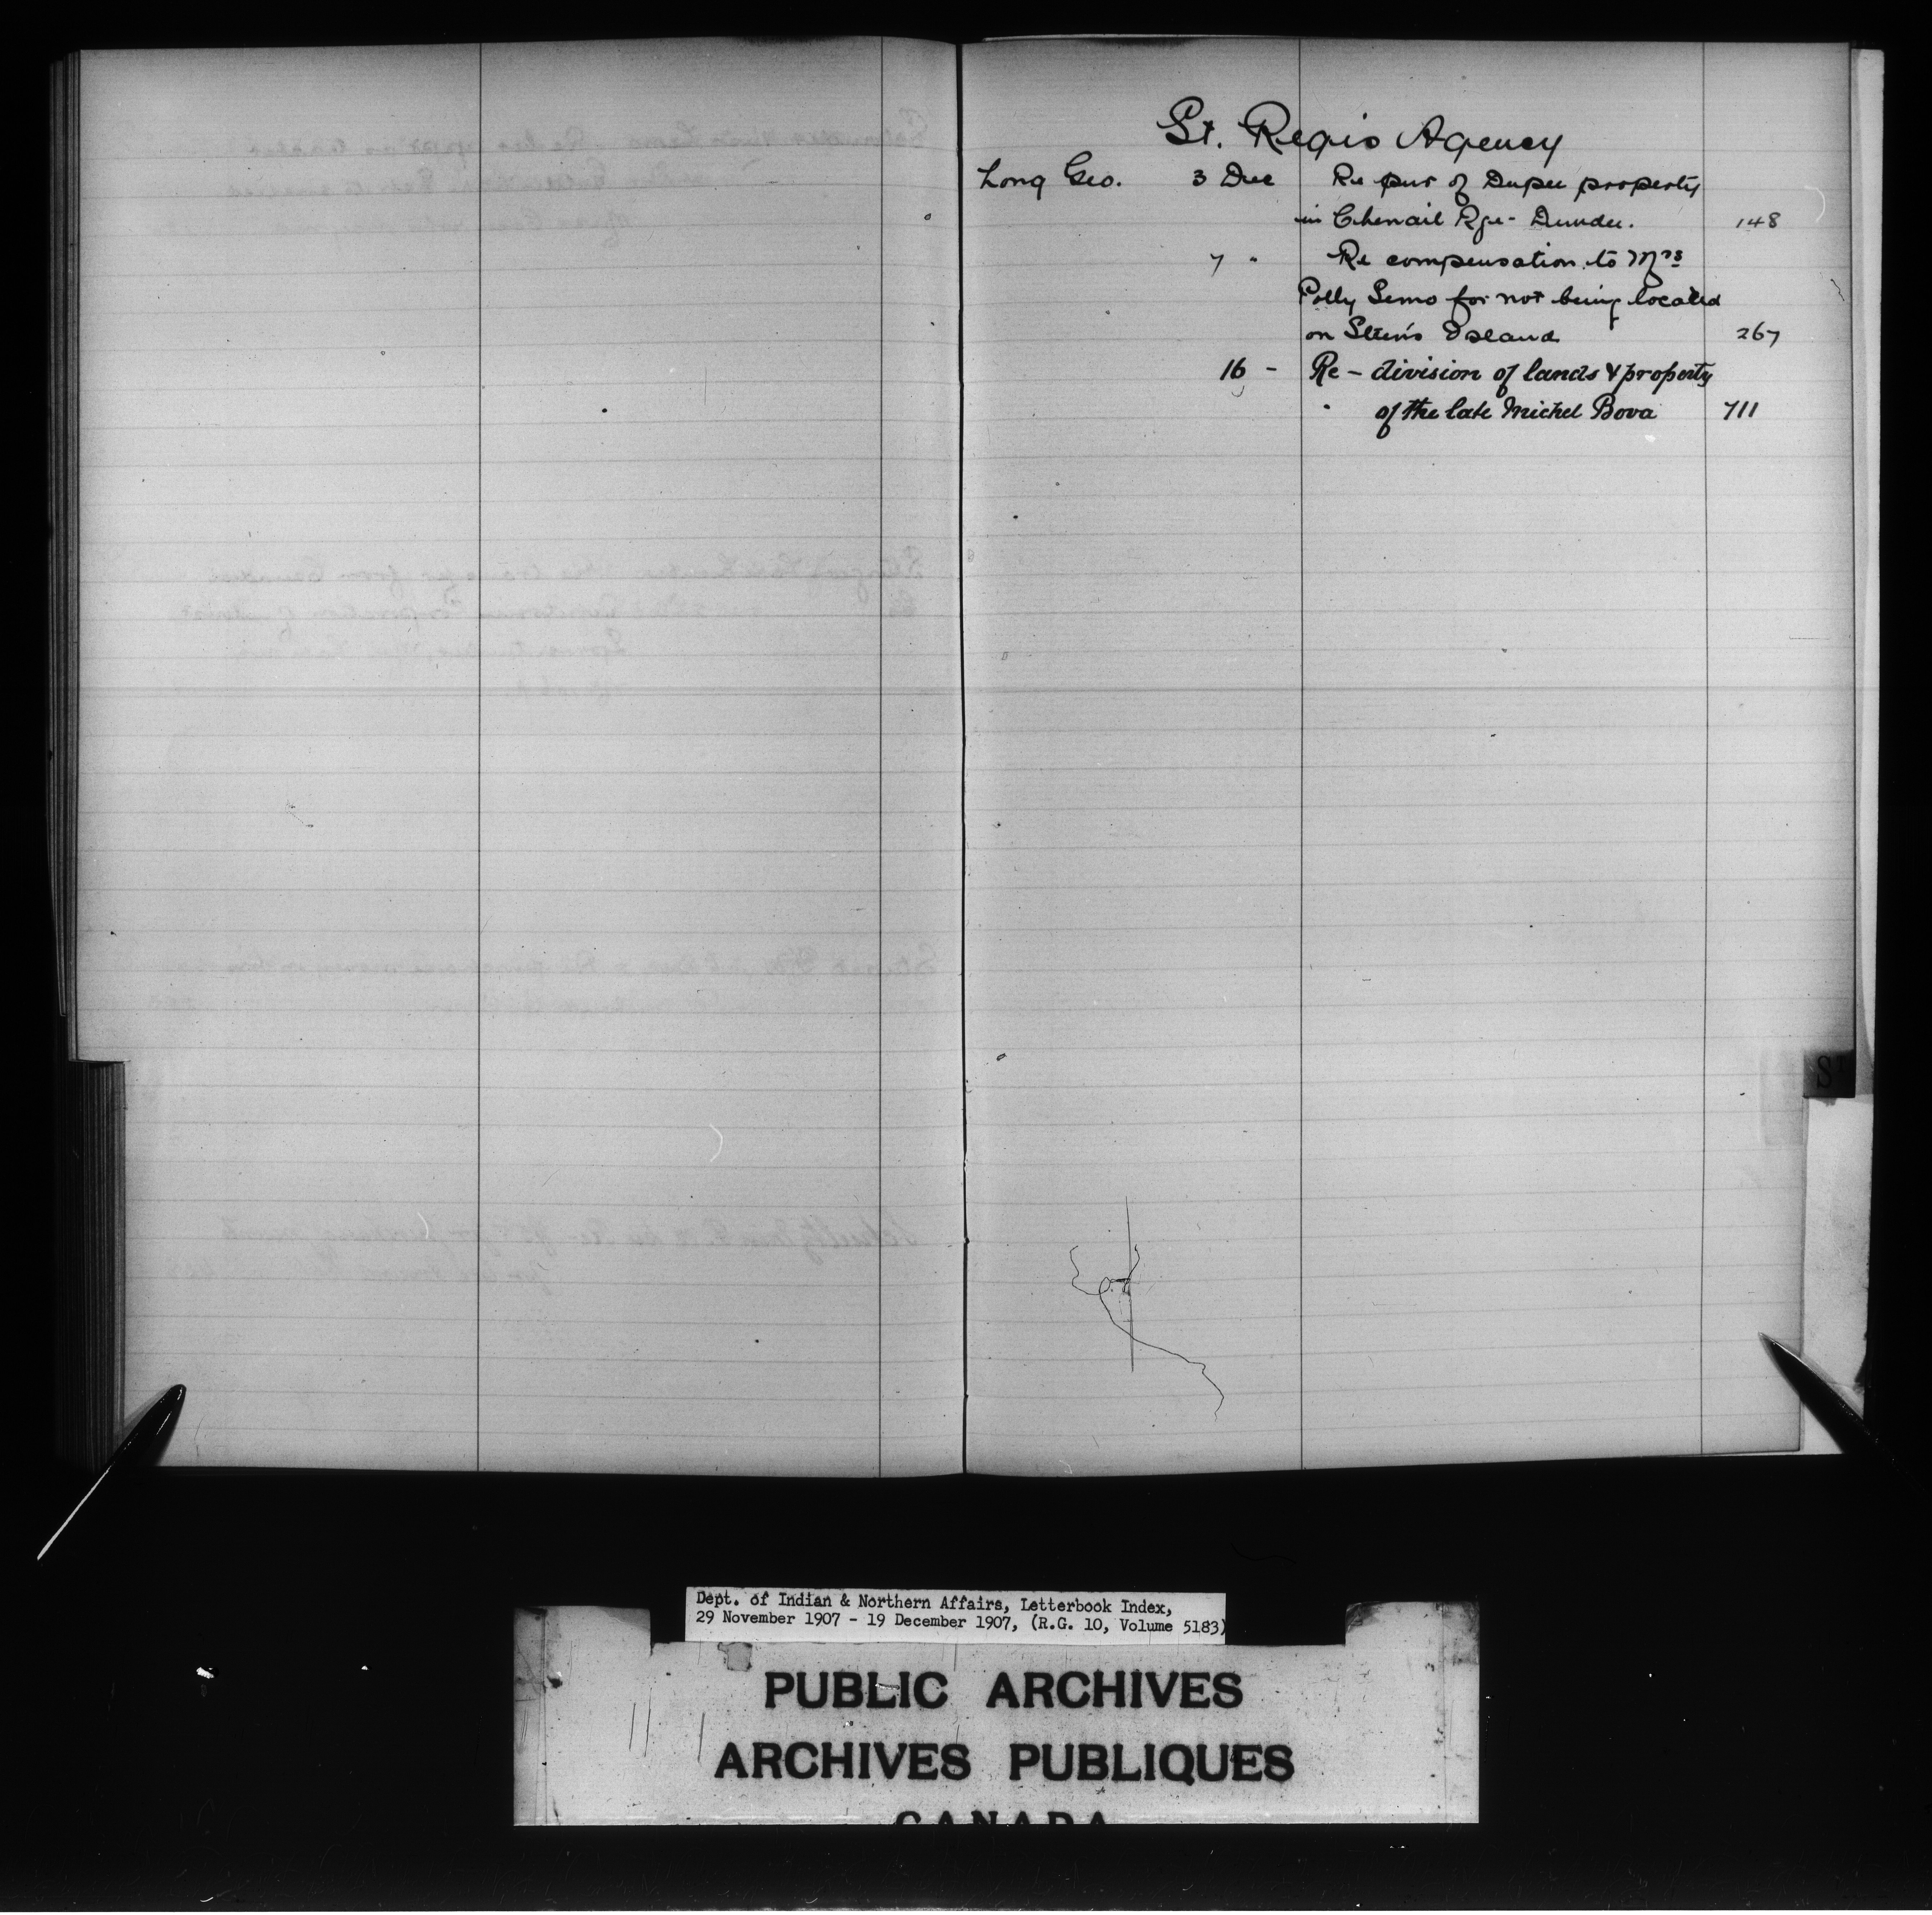 St. Regis Agency
Long Geo. 3 Dec Re pur of Dupee property
in Chenail Rge - Dundee. 148
7 " Re compensation to Mrs
Polly Semo for not being located
on Island 267
16 - Re - division of lands & property
" of the late Michel Bova 711
St
Dept. of Indian & Northern Affairs, Letterbook Index,
29 November 1907 - 19 December 1907, (R.G. 10, Volume 5183)
PUBLIC ARCHIVES
ARCHIVES PUBLIQUES
CANADA